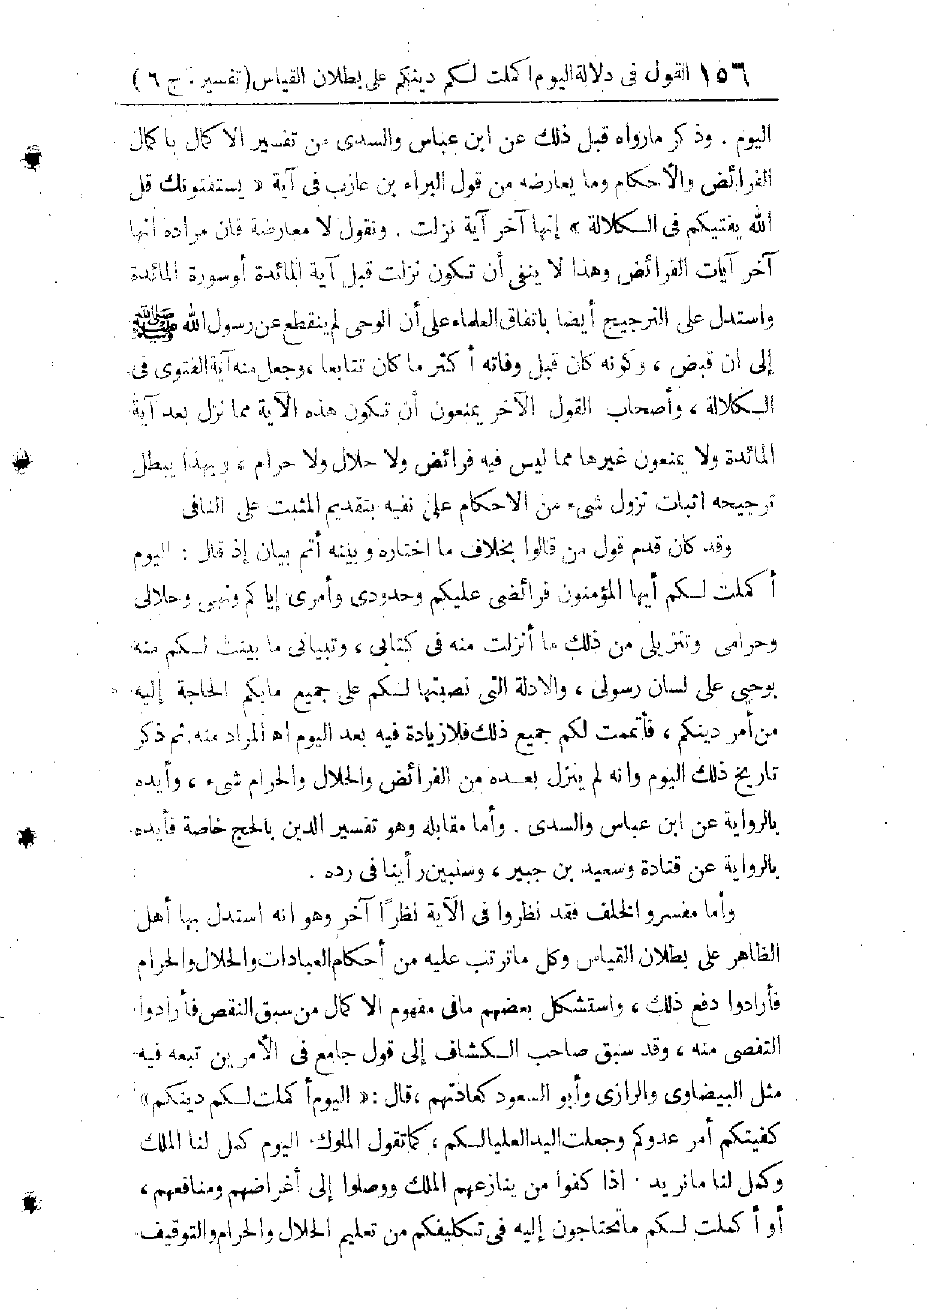 ١٥٦ القول فى دلالة اليوم اكملت لكم دينكم على بطلان القياس (تفسير : ج ٦)
اليوم . وذكر مارواه قبل ذلك عن ابن عباس والسدى من تفسير الاكمال باكمال
الفرائض والاحكام وما يعارضه من قول البراء بن عازب فى آية « يستفتونك قل
الله يفتيكم فى الكلالة » إنها آخر آية نزلت . ونقول لا معارضة فان مراده أنها
آخر آيات الفرائض وهذا لا ينفى أن تكون نزلت قبل آية المائدة أوسورة المائدة
واستدل على الترجيح أيضا باتفاق العلماء على أن الوحى لم ينقطع عن رسول الله ﷺ
إلى ان قبض ، وكونه كان قبل وفاته أكثر ما كان تتابعا ، وجعل منه آية الفتوى فى
الكلالة ، وأصحاب القول الآخر يمنعون أن تكون هذه الآية مما نزل بعد آية
المائدة ولا يمنعون غيرها مما ليس فيه فرائض ولا حلال ولا حرام ، وبهذا يبطل
ترجيحه اثبات نزول شىء من الاحكام على نفيه بتقديم المثبت على النافى
وقد كان قدم قول من قالوا بخلاف ما اختاره وبينه أتم بيان إذ قال : اليوم
أكملت لكم أيها المؤمنون فرائضى عليكم وحدودى وأمرى إياكم ونهى وحلالى
وحرامى وتنزيلى من ذلك ما أنزلت منه فى كتابى ، وتبيانى ما بينت لكم منه
بوحيى على لسان رسولى ، والادلة التى نصبتها لكم على جميع مابكم الحاجة إليه
من أمر دينكم ، فأتممت لكم جميع ذلك فلا زيادة فيه بعد اليوم اه المراد منه. ثم ذكر
تاريخ ذلك اليوم وانه لم ينزل بعده من الفرائض والحلال والحرام شىء ، وأيده
بالرواية عن ابن عباس والسدى . وأما مقابله وهو تفسير الدين بالحج خاصة فأيده
بالرواية عن قتادة وسعيد بن جبير ، وسنبين رأينا فى رده .
وأما مفسرو الخلف فقد نظروا فى الآية نظرًا آخر وهو انه استدل بها أهل
الظاهر على بطلان القياس وكل ماترتب عليه من أحكام العبادات والحلال والحرام
فأرادوا دفع ذلك ، واستشكل بعضهم مافى مفهوم الاكمال من سبق النقص فأرادوا
التفصى منه ، وقد سبق صاحب الكشاف إلى قول جامع فى الأمرين تبعه فيه
مثل البيضاوى والرازى وأبو السعود كعادتهم ، قال : « اليوم أكملت لكم دينكم »
كفيتكم أمر عدوكم وجعلت اليد العليا لكم ، كما تقول الملوك : اليوم كمل لنا الملك
وكمل لنا ما نريد . اذا كفوا من ينازعهم الملك ووصلوا إلى أغراضهم ومنافعهم ،
أو أكملت لكم ماتحتاجون إليه فى تكليفكم من تعليم الحلال والحرام والتوقيف